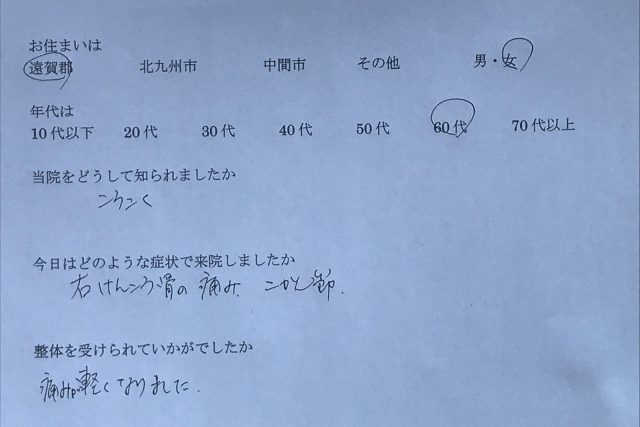 お住まいは
遠賀郡 北九州市 中間市 その他 男・女
年代は
10代以下 20代 30代 40代 50代 60代 70代以上
当院をどうして知られましたか
こうこく
今日はどのような症状で来院しましたか
右けんこう骨の痛み こかん節.
整体を受けられていかがでしたか
痛みが軽くなりました.